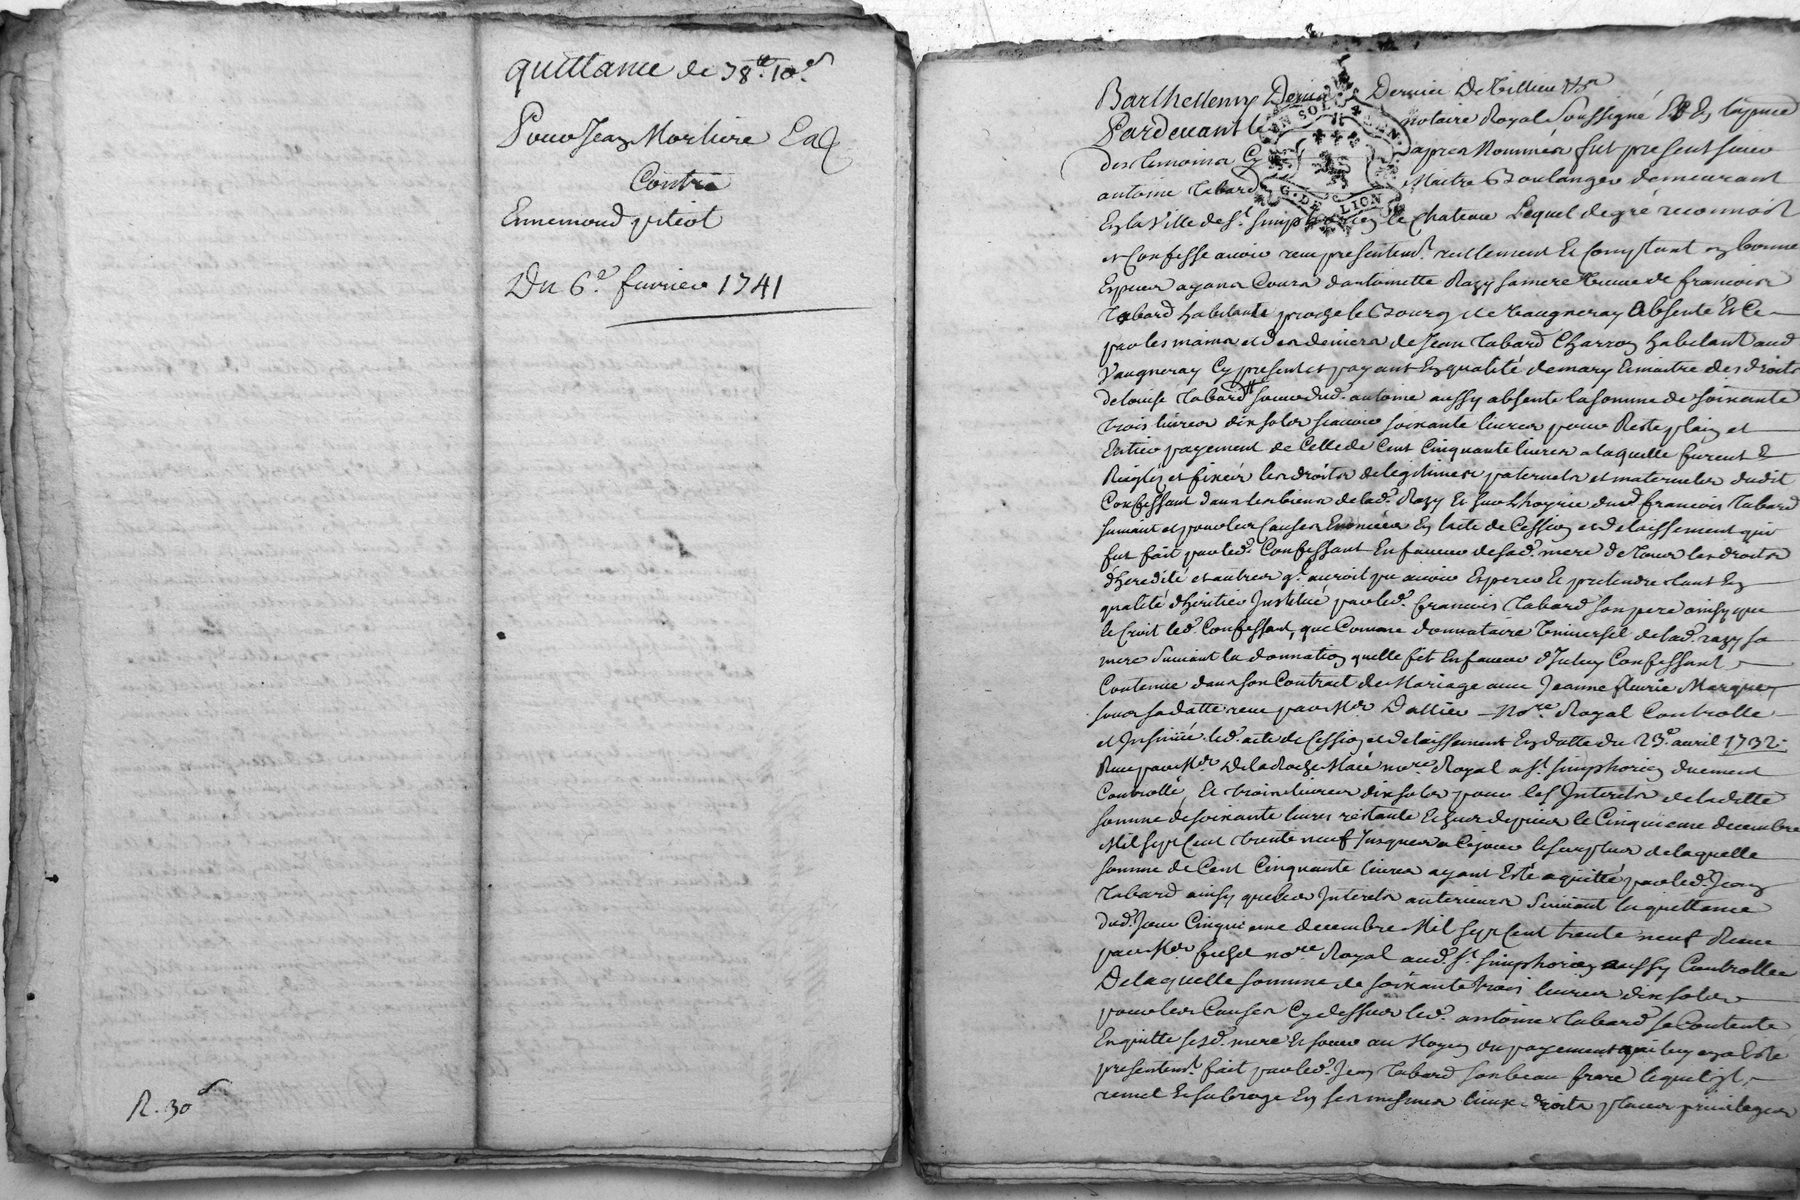 quittance de 78tt. 10s.
Pour Jean Morliere
Contre
Ennemond pitiot
Du 6e. fevrier 1741
R. 30s
Barthellemy Denis Dervieu De Villieu
Pardevant le notaire Royal soussigné & En presence
des temoins Cy apres Nommés fut present sieur
antoine tabard Maitre Boulanger demeurant
En la Ville de St. simphorien le chateau Lequel de gré reconnoit
et Confesse avoir receu presentemt. reellement Et Comptant en bonne
Especes ayans Cours d'antoinette Razy sa mere Veuve de francois
tabard habitante proche le Bourg de vaugneray Absente Et Ce
par les mains et des deniers de Jean tabard Charron habitant aud
Vaugneray Cy present et payant En qualité de mary Et maitre des droits
de louise tabard soeur dud. antoine aussy absente la somme de soixante
trois livres dix sols scavoir soixante livres pour Reste plain et
Entier payement de Celle de Cent Cinquante livres a laquelle furent
Reiglés et fixés les droits de legitimes paternels et maternels dudit
Confessant dans les biens de lad. Razy Et sur L'hoyrie dud francois tabard
suivant et pour les Causes Enoncées En l'acte de Cession et delaissement qui
fut fait par led. Confessant En faveur de sad. mere de tous les droits
d'heredité et autres qu'il auroit pu avoir Esperer Et pretendre tant En
qualité d'heritier Institué par led. francois tabard son pere ainsy que
le Croit led. Confessant, que Comme donnataire Universel de lad. razy sa
mere suivant la donnation quelle fit En faveur d'Iceluy Confessant
Contenue dans son Contract de Mariage avec Jeanne fleurie Marquet
sous sa datte receu par Me. Dattier Nore. Royal Controllé
et Insinüé led. acte de Cession et delaissement En datte du 23e. avril 1732
Receu par Me. De la Roche Macé nore. Royal a St. simphorien duement
Controllé, Et trois livres dix sols pour les Interets de laditte
somme de soixante livres restante Echus depuis le Cinquieme decembre
Mil sept Cent trente neuf Jusques a Ce jour le surplus de laquelle
somme de Cent Cinquante livres ayant Esté aquitté par led. Jean
tabard ainsy que les Interets anterieurs suivant la quittance
dud. Jour Cinquieme decembre Mil sept Cent trente neuf Receue
par Me. nore Royal aud. St. simphorien aussy Controllée
De laquelle somme de soixante trois livres dix sols
pour les Causes Cy dessus led. antoine tabard se Contente
En quitte sesd. mere Et soeur au Moyen du payement qui luy en a Esté
presentemt. fait par led. Jean tabard son beau frere lequel Il
remet Et subroge En ses mesmes lieux droits places privileges
EN. SOL
GEN.
G. DE LION